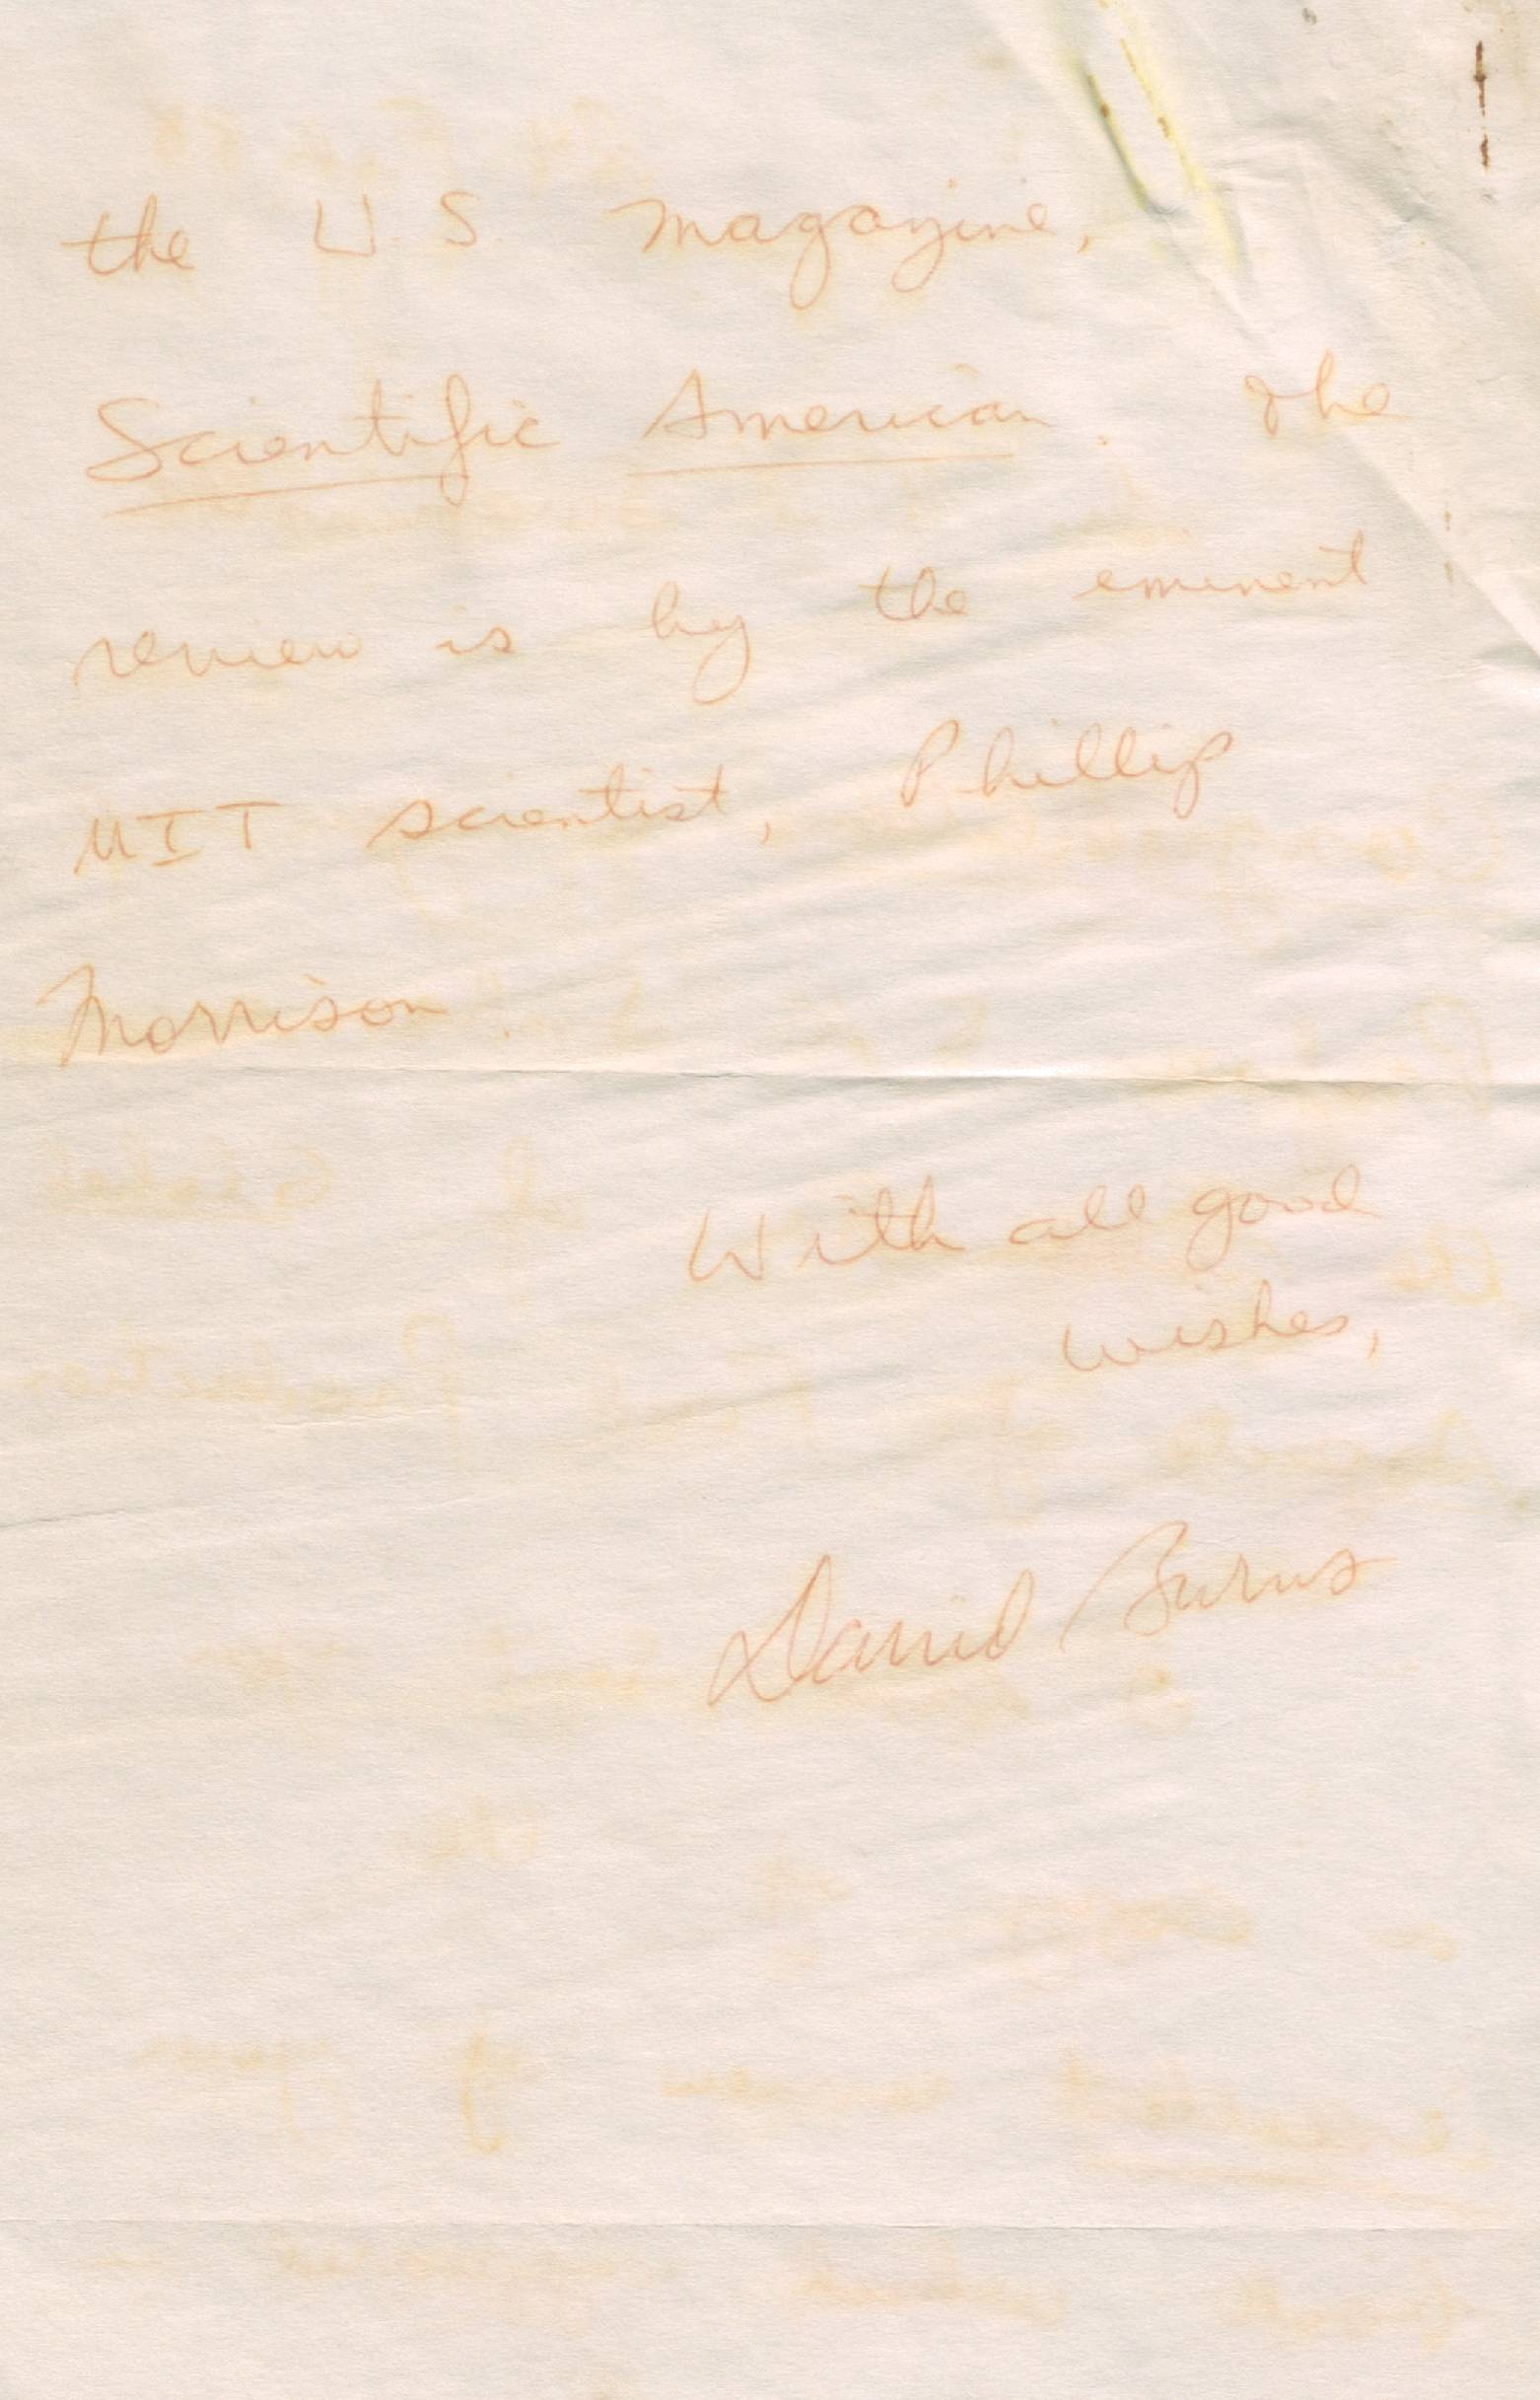 the U.S. magazine,
Scientific American. The
review is by the eminent
MIT scientist, Phillip
Morrison.
With all good
wishes,
David Burns